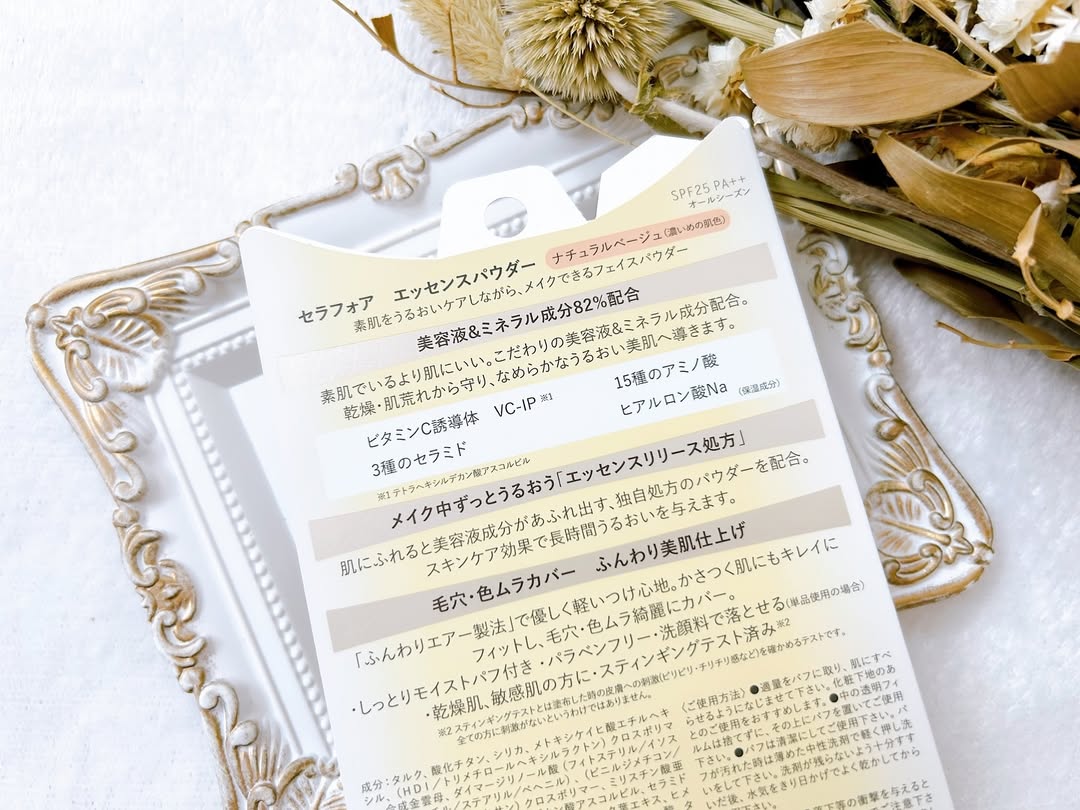 SPF25 PA++
オールシーズン
セラフォア エッセンスパウダー ナチュラルベージュ(濃いめの肌色)
素肌をうるおいケアしながら、メイクできるフェイスパウダー
美容液&ミネラル成分82%配合
素肌でいるより肌にいい。こだわりの美容液&ミネラル成分配合。
乾燥・肌荒れから守り、なめらかなうるおい美肌へ導きます。
ビタミンC誘導体 VC-IP※1 15種のアミノ酸
3種のセラミド ヒアルロン酸Na (保湿成分)
※1 テトラヘキシルデカン酸アスコルビル
メイク中ずっとうるおう「エッセンスリリース処方」
肌にふれると美容液成分があふれ出す、独自処方のパウダーを配合。
スキンケア効果で長時間うるおいを与えます。
毛穴・色ムラカバー ふんわり美肌仕上げ
「ふんわりエアー製法」で優しく軽いつけ心地。かさつく肌にもキレイに
フィットし、毛穴・色ムラ綺麗にカバー。
・しっとりモイストパフ付き・パラベンフリー・洗顔料で落とせる(単品使用の場合)
・乾燥肌、敏感肌の方に・スティンギングテスト済み※2
※2 スティンギングテストとは塗布した時の皮膚への刺激(ピリピリ・チリチリ感など)を確かめるテストです。
全ての方に刺激がないというわけではありません。
成分:タルク、酸化チタン、シリカ、メトキシケイヒ酸エチルヘキ
シル、(HDI/トリメチロールヘキシルラクトン)クロスポリマ
ー、合成金雲母、ダイマージリノール酸(フィトステリル/イソス
テアリル/セチル/ステアリル/ベヘニル)、(ビニルジメチコン/
クロスポリマー、ミリスチン酸亜
〈ご使用方法〉●適量をパフに取り、肌にすべ
らせるようになじませて下さい。化粧下地のあ
とのご使用をおすすめします。●中の透明フィ
ルムは捨てずに、その上にパフを置いてご使用
下さい。●パフは清潔にしてご使用下さい。パ
フが汚れた時は薄めた中性洗剤で軽く押し洗
いをして下さい。洗剤が残らないよう十分すす
いだ後、水気をきり日かげでよく乾かしてから